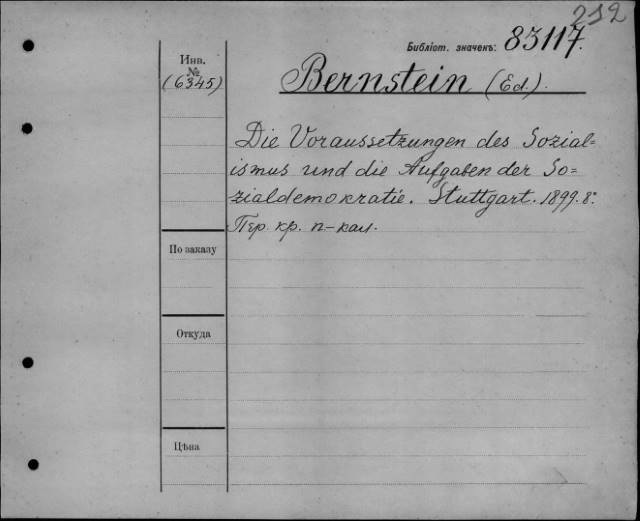 212
Библіот. значекъ: 83117.
Инв.
№
(6345)
Bernstein (Ed.).
Die Voraussetzungen des Sozial=
ismus und die Aufgaben der So=
zialdemokratie. Stuttgart. 1899. 8º
Пер. кр. п-кал.
По заказу
Откуда
Цѣна